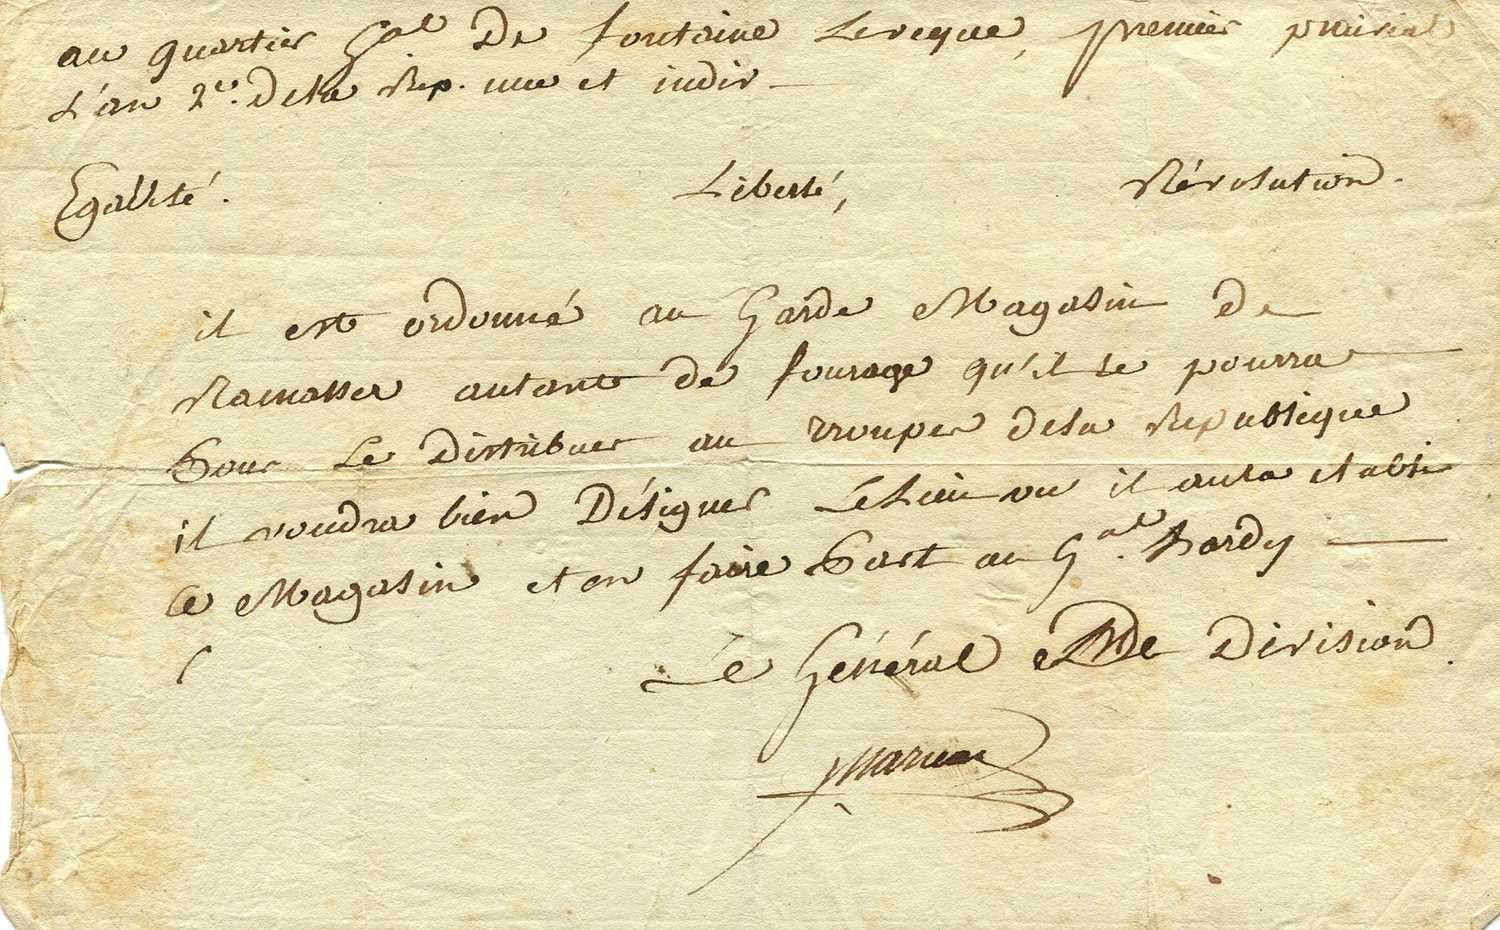 au quartier Gal De fontaine Leveque, premier prairial
L'an 2e. Dela Rep. une et indiv
Egalité. Liberté, Révolution.
il est ordonné au Garde Magasin de
Ramasser autant de fourage qu'il se pourra
Pour Le Distribuer au trouper dela Republique
il voudra bien Désigner Le Lieu ou il aura etabli
Ce Magasin et en faire Part au Gal. hardy
Le Général De Division.
Marceau